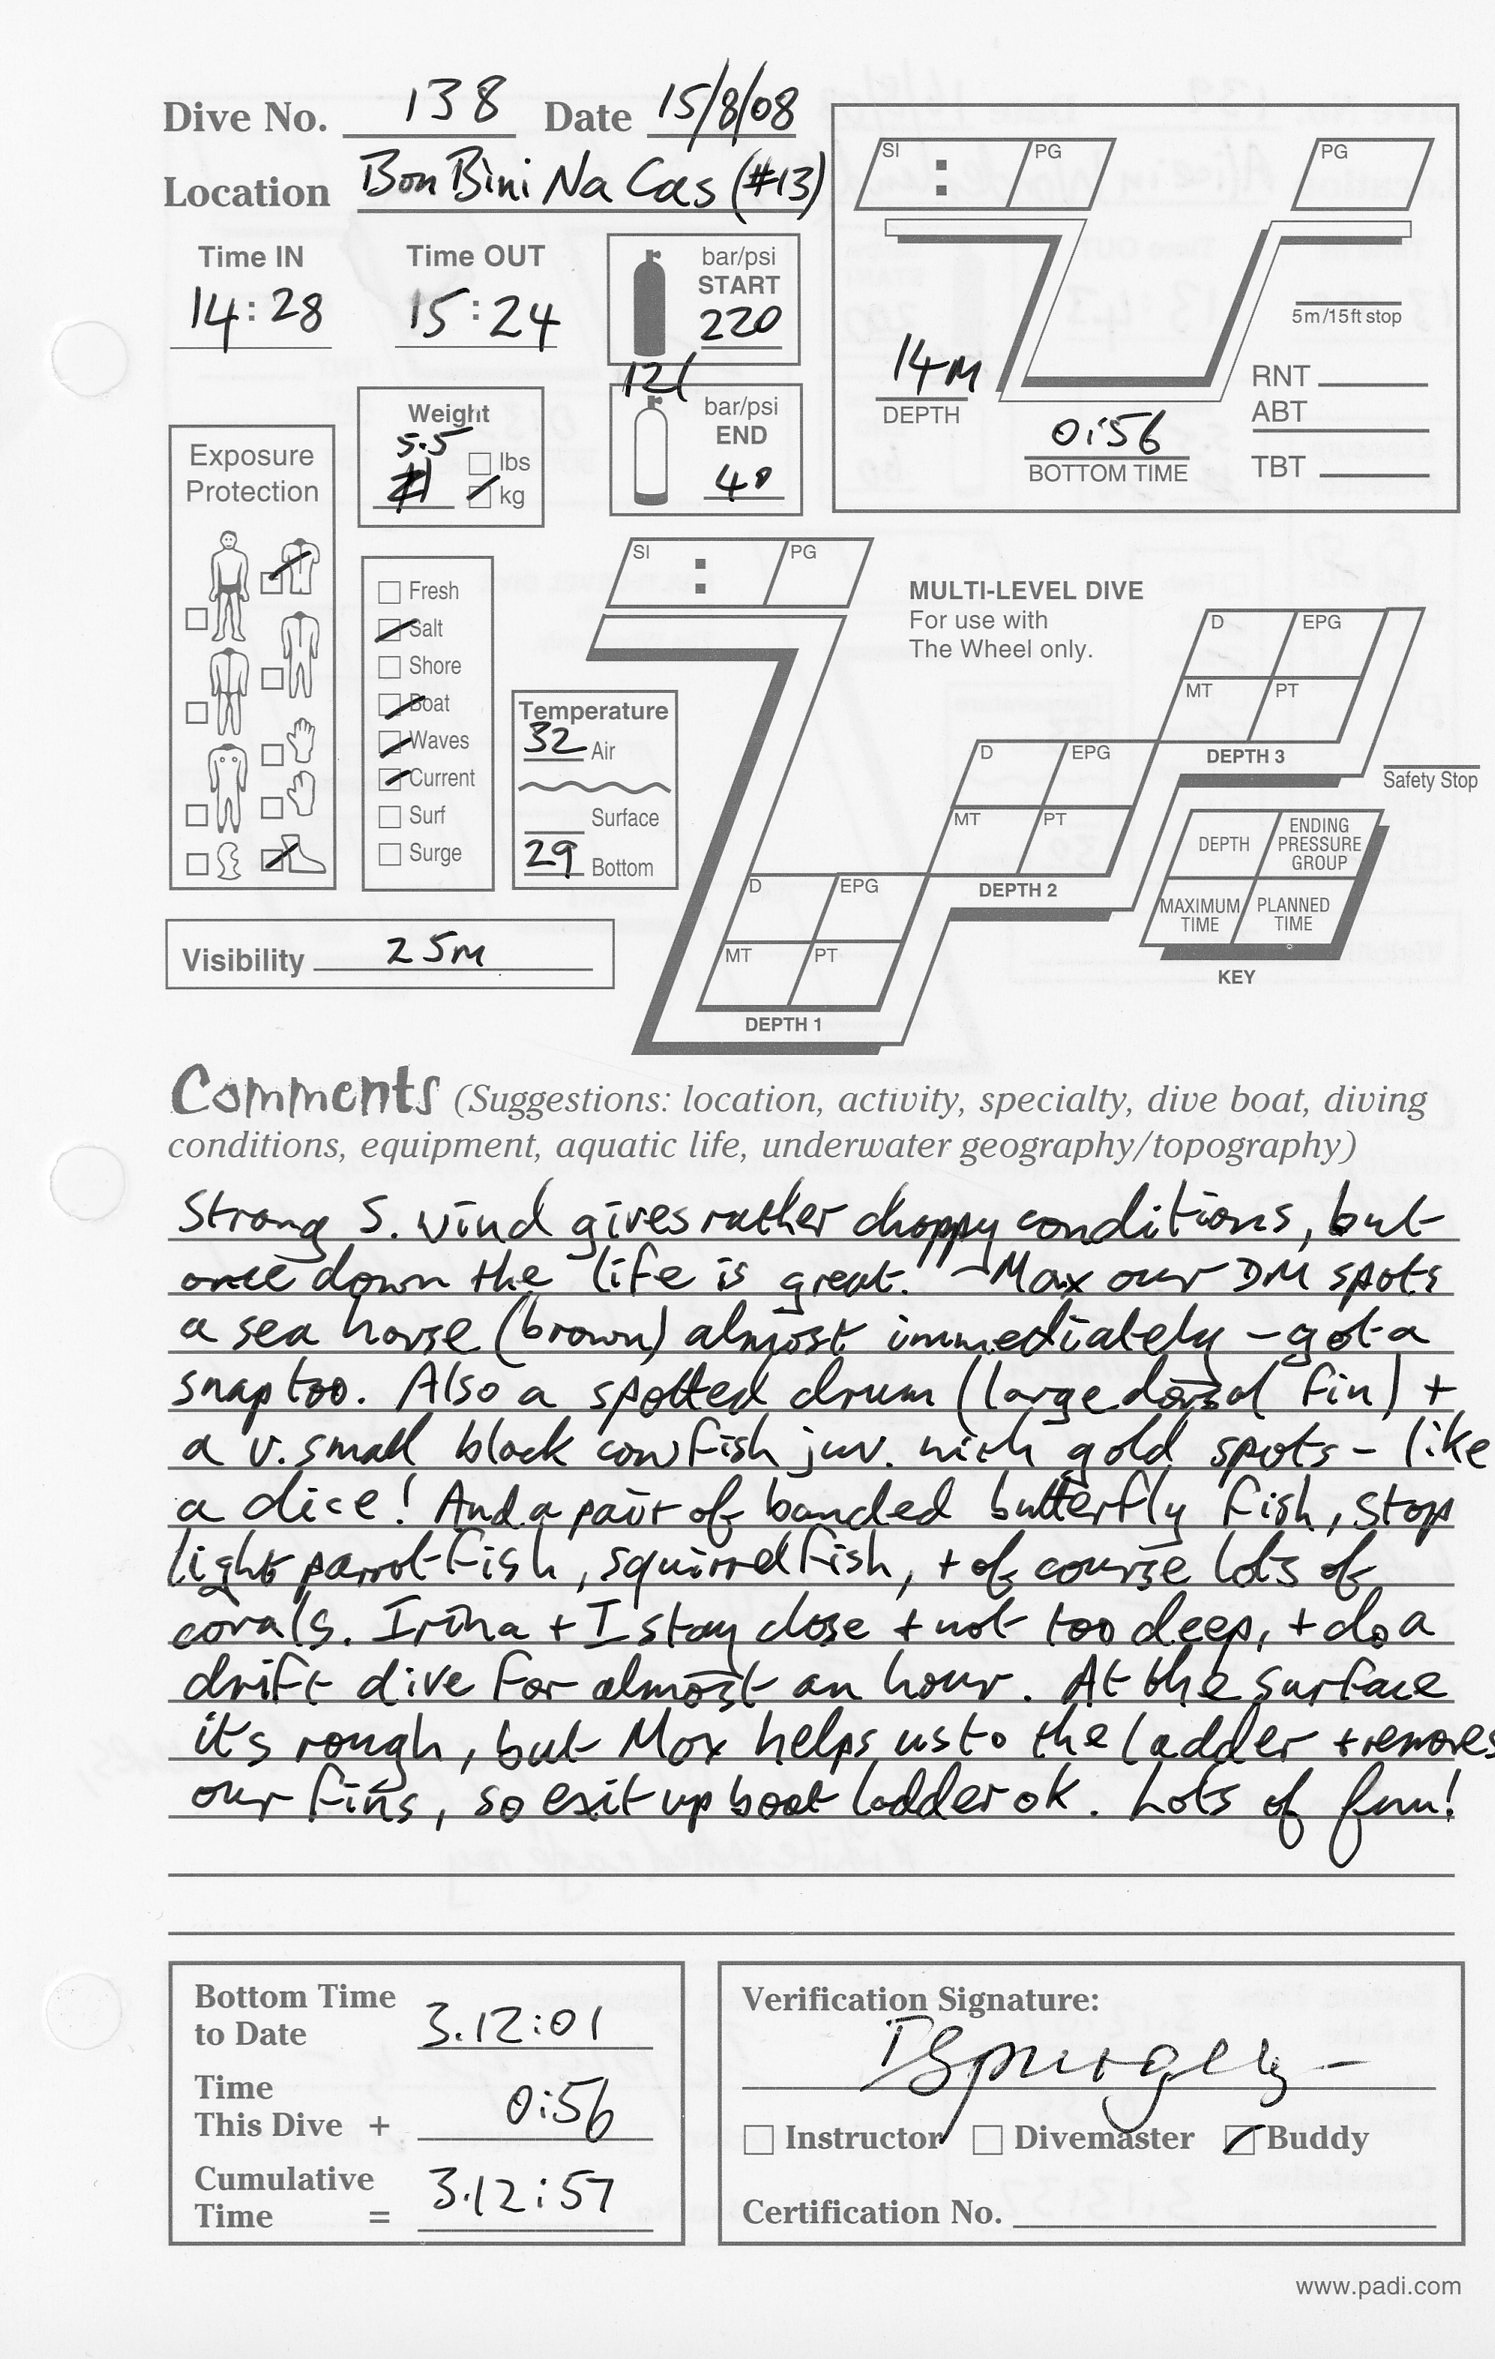 Dive No. 138 Date 15/8/08
Location Bon Bini Na Cas (#13)
Time IN Time OUT
14:28 15:24
bar/psi
START
220
12l
bar/psi
END
40
Weight
5.5
lbs
kg
Exposure
Protection
Fresh
Salt
Shore
Boat
Waves
Current
Surf
Surge
Temperature
32 Air
Surface
29 Bottom
Visibility 25m
SI : PG
PG
14M
DEPTH
0:56
BOTTOM TIME
5m/15ft stop
RNT
ABT
TBT
SI : PG
MULTI-LEVEL DIVE
For use with
The Wheel only.
D EPG
MT PT
DEPTH 3
Safety Stop
D EPG
MT PT
DEPTH 2
D EPG
MT PT
DEPTH 1
DEPTH
ENDING
PRESSURE
GROUP
MAXIMUM
TIME
PLANNED
TIME
KEY
Comments (Suggestions: location, activity, specialty, dive boat, diving
conditions, equipment, aquatic life, underwater geography/topography)
Strong S. wind gives rather choppy conditions, but
once down the life is great. - Max our DM spots
a sea horse (brown) almost immediately - got a
snap too. Also a spotted drum (large dorsal fin) +
a v. small black cowfish juv. with gold spots - like
a dice! And a pair of banded butterfly fish, stop
light parrot fish, squirrel fish, + of course lots of
corals. Irina + I stay close + not too deep, + do a
drift dive for almost an hour. At the surface
it's rough, but Max helps us to the ladder + removes
our fins, so exit up boat ladder ok. Lots of fun!
Bottom Time
to Date 3.12:01
Time
This Dive + 0:56
Cumulative
Time = 3.12:57
Verification Signature:
Instructor Divemaster Buddy
Certification No.
www.padi.com